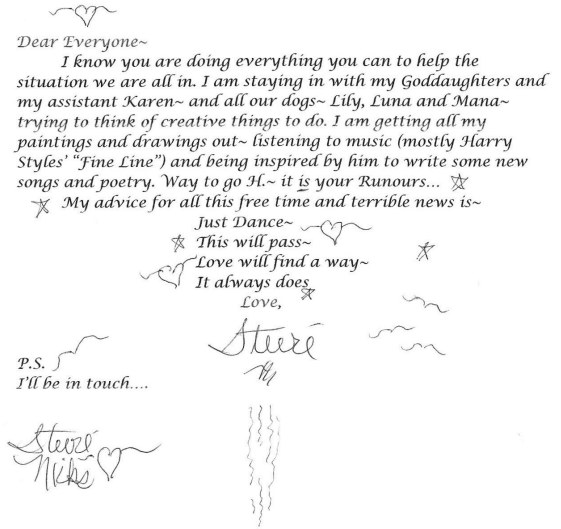 Dear Everyone~
I know you are doing everything you can to help the
situation we are all in. I am staying in with my Goddaughters and
my assistant Karen~ and all our dogs~ Lily, Luna and Mana~
trying to think of creative things to do. I am getting all my
paintings and drawings out~ listening to music (mostly Harry
Styles' “Fine Line”) and being inspired by him to write some new
songs and poetry. Way to go H.~ it is your Runours...
My advice for all this free time and terrible news is~
Just Dance~
This will pass~
Love will find a way~
It always does
Love,
Stevie
P.S.
I'll be in touch....
Stevie
Nicks